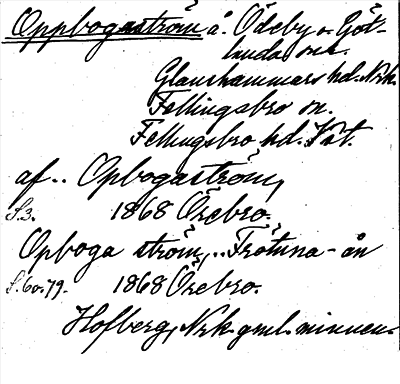 Oppbogaström å. Ödeby o. Göt-
lunda snr.
Glanshammars hd. Nrk.
Fellingsbro sn.
Fellingsbro hd. Vstm.
af.. Opbogaström,
S.3. 1868 Örebro.
Opboga ström,.. Frötuna-ån
S.60.79. 1868 Örebro.
Hofberg, Nrk gml. minnen.